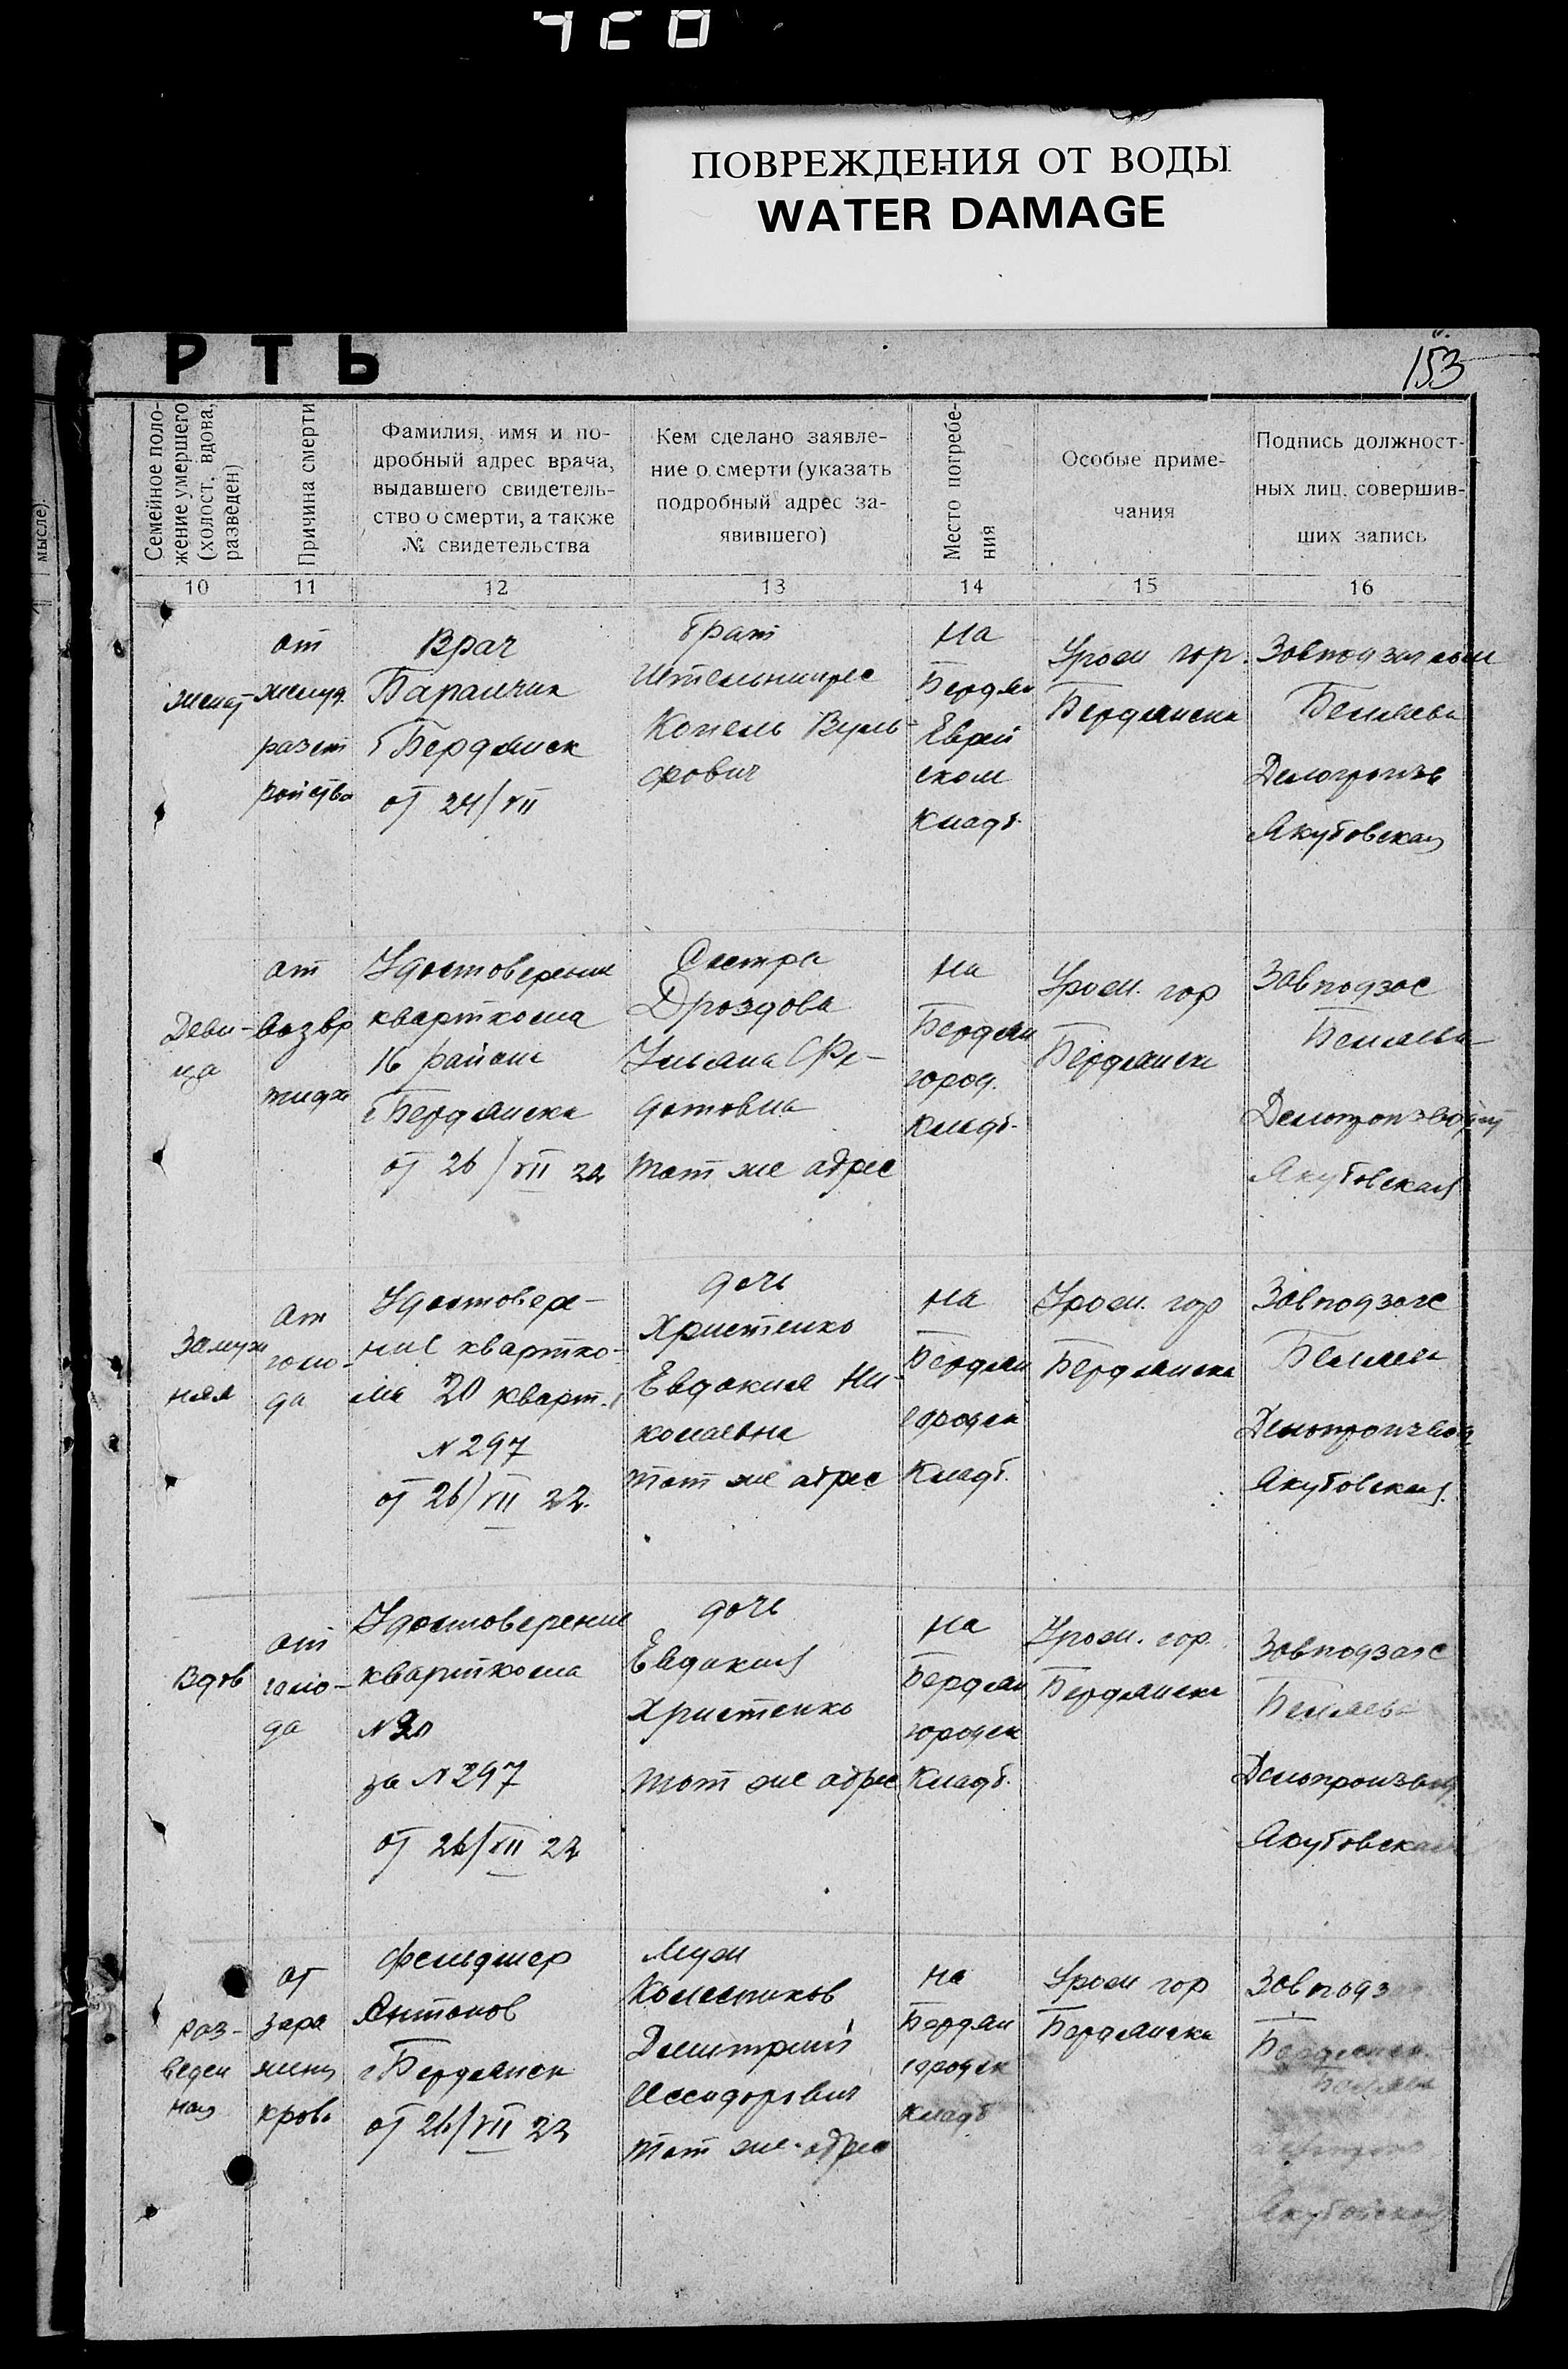 ПОВРЕЖДЕНИЯ ОТ ВОДЫ
WATER DAMAGE
РТЬ
153
мысле).
Семейное поло-
жение умершего
(холост, вдова,
разведен)
Причина смерти
Фамилия, имя и по-
дробный адрес врача,
выдавшего свидетель-
ство о смерти, а также
№ свидетельства
Кем сделано заявле-
ние о смерти (указать
подробный адрес за-
явившего)
Место погребе-
ния
Особые приме-
чания
Подпись должност-
ных лиц, совершив-
ших запись
10
11
12
13
14
15
16
женат
от
желуд.
разст
ройства
Врач
г Бердянск
от 24/VII
брат
Копель Вуль-
фович
На
Бердян
Еврей
ском
кладб.
Урож гор.
Бердянска
Беляева
Якубовская
Деви-
ца
от
возвр
тифа
Удостоверение
кварткома
16 района
г Бердянска
от 26/VII 22
Сестра
Дроздова
Ульяна Фе-
дотовна
тот же адрес
на
Бердян
город.
кладб.
Урож. гор
Бердянска
Завподзаг
Беляева
Якубовская
Замуж
няя
от
голо-
да
Удостовере-
ние квартко-
ма 20 кварт.
N 297
от 26/VII 22.
дочь
Христенко
Евдокия Ни-
колаевна
тот же адрес
на
Бердян
городск
кладб.
Урож. гор
Бердянска
Завподзагс
Беляева
Делопроизвод
Якубовская.
Вдов
от
голо-
да
Удостоверение
кварткома
N 20
за N 297
от 26/VII 22
дочь
Евдокия
Христенко
тот же адрес
на
Бердян
городск
кладб.
Урож. гор.
Бердянска
Завподзагс
Беляева
Делопроизвод
Якубовская
раз-
веден
ная
от
зара
жения
крови
фельдшер
Антонов
г Бердянск
от 26/VII 22
Муж
Колесников
Димитрий
Иссидорович
тот же адрес
на
Бердян
городск
кладб
Урож гор
Бердянска
Завподз
Якубовская